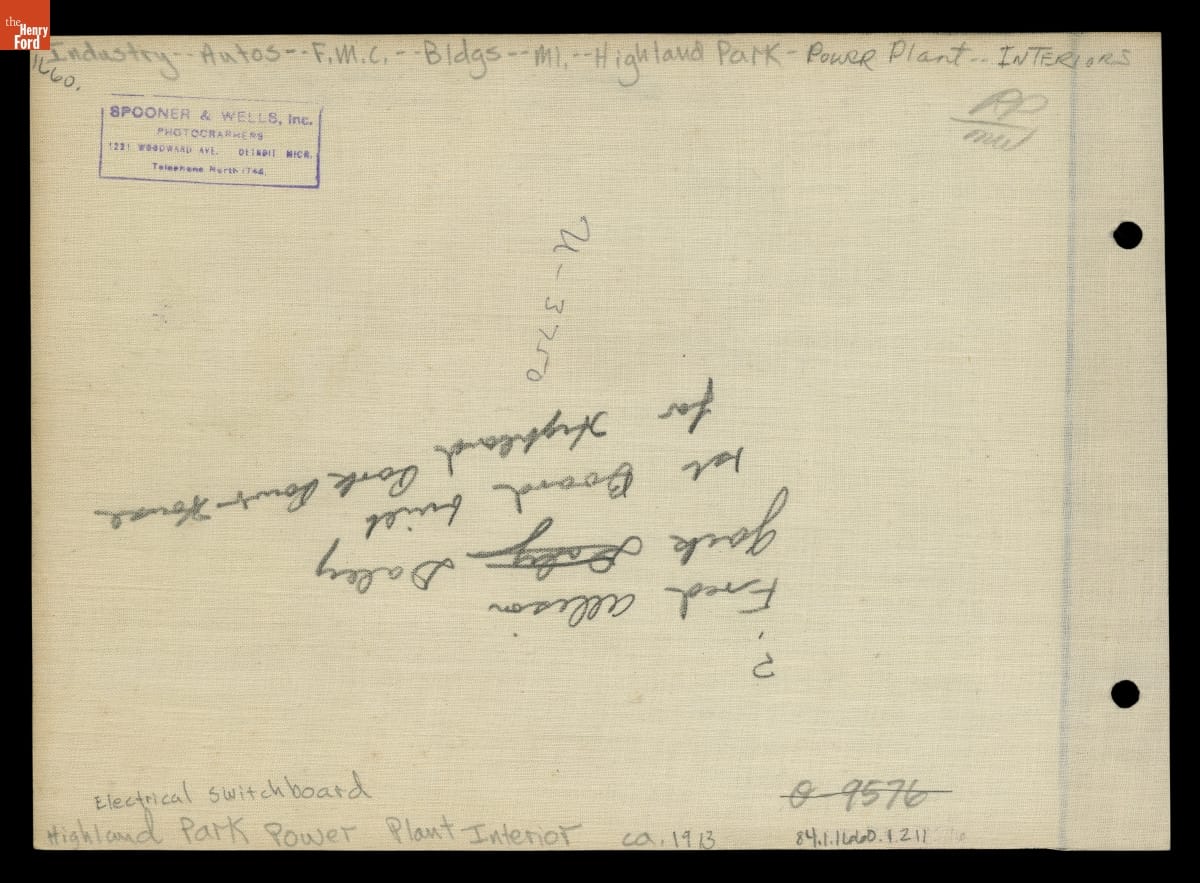 the
Henry
Ford
Industry--Autos--F.M.C.--Bldgs--MI.--Highland Park-Power Plant--INTERIORS
1660.
SPOONER & WELLS, Inc.
PHOTOGRAPHERS
1221 WOODWARD AVE. DETROIT MICH.
Telephone North 1746.
U-3750
?
Fred Allison
Jack Daley Daley
1st Board built
for Highland Park Power House
Electrical switchboard
Highland Park Power Plant Interior ca. 1913
O-9576
84.1.1660.1211